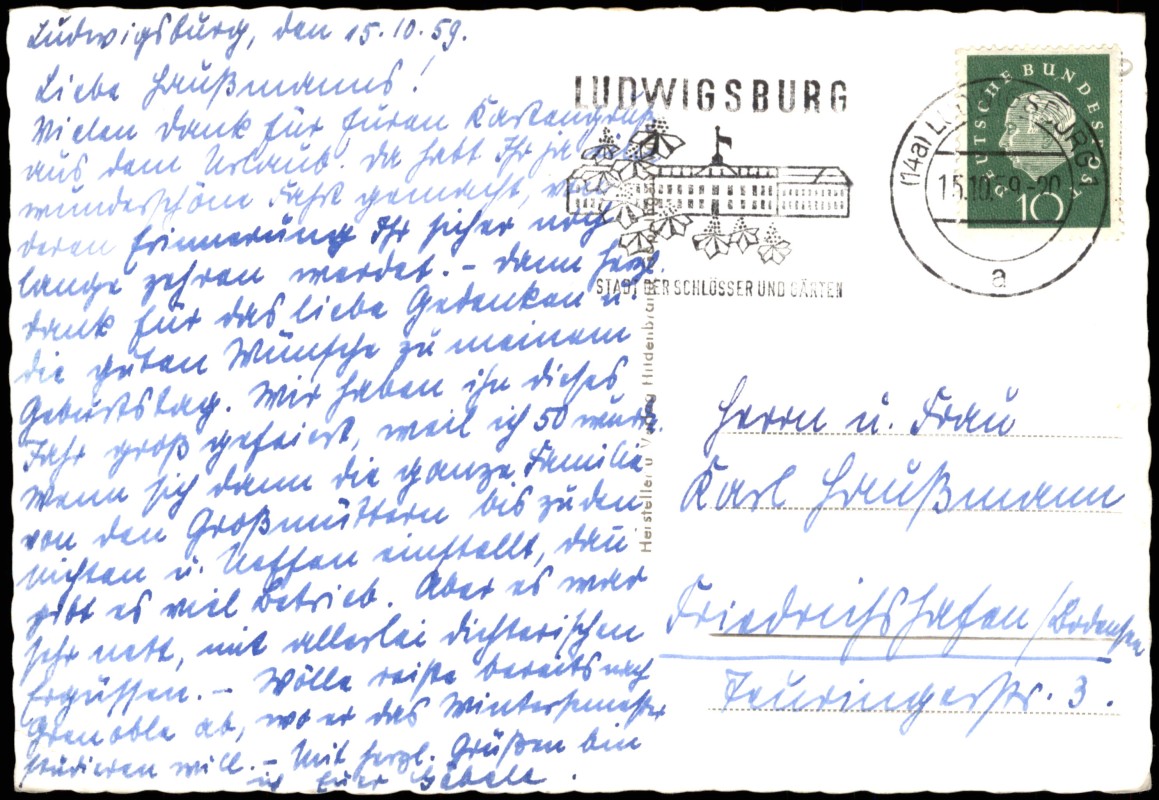 Ludwigsburg, den 15.10.59.
Liebe Haußmanns!
Vielen Dank für Euren Kartengruß
aus dem Urlaub. Da habt Ihr ja eine
wunderschöne Fahrt gemacht, von
deren Erinnerung Ihr sicher noch
lange zehren werdet. – Dann herzl.
Dank für das liebe Gedenken u.
die guten Wünsche zu meinem
Geburtstag. Wir haben ihn dieses
Jahr groß gefeiert, weil ich 50 wurde.
Wenn sich dann die ganze Familie
von den Großmüttern bis zu den
Nichten u. Neffen einstellt, dann
gibt es viel Betrieb. Aber es war
sehr nett, mit allerlei dichterischen
Ergüssen. – Wölle reiste bereits nach
Grenoble ab, wo er das Wintersemester
studieren will. – Mit herzl. Grüßen bin
ich Euer
LUDWIGSBURG
STADT DER SCHLÖSSER UND GÄRTEN
DEUTSCHE BUNDESPOST
10
(14a) LUDWIGSBURG 1
15.10.59-20
a
Hersteller u. Verlag Hildenbrand
Herrn u. Frau
Karl Haußmann
Friedrichshafen/Bodensee
Teuringerstr. 3.